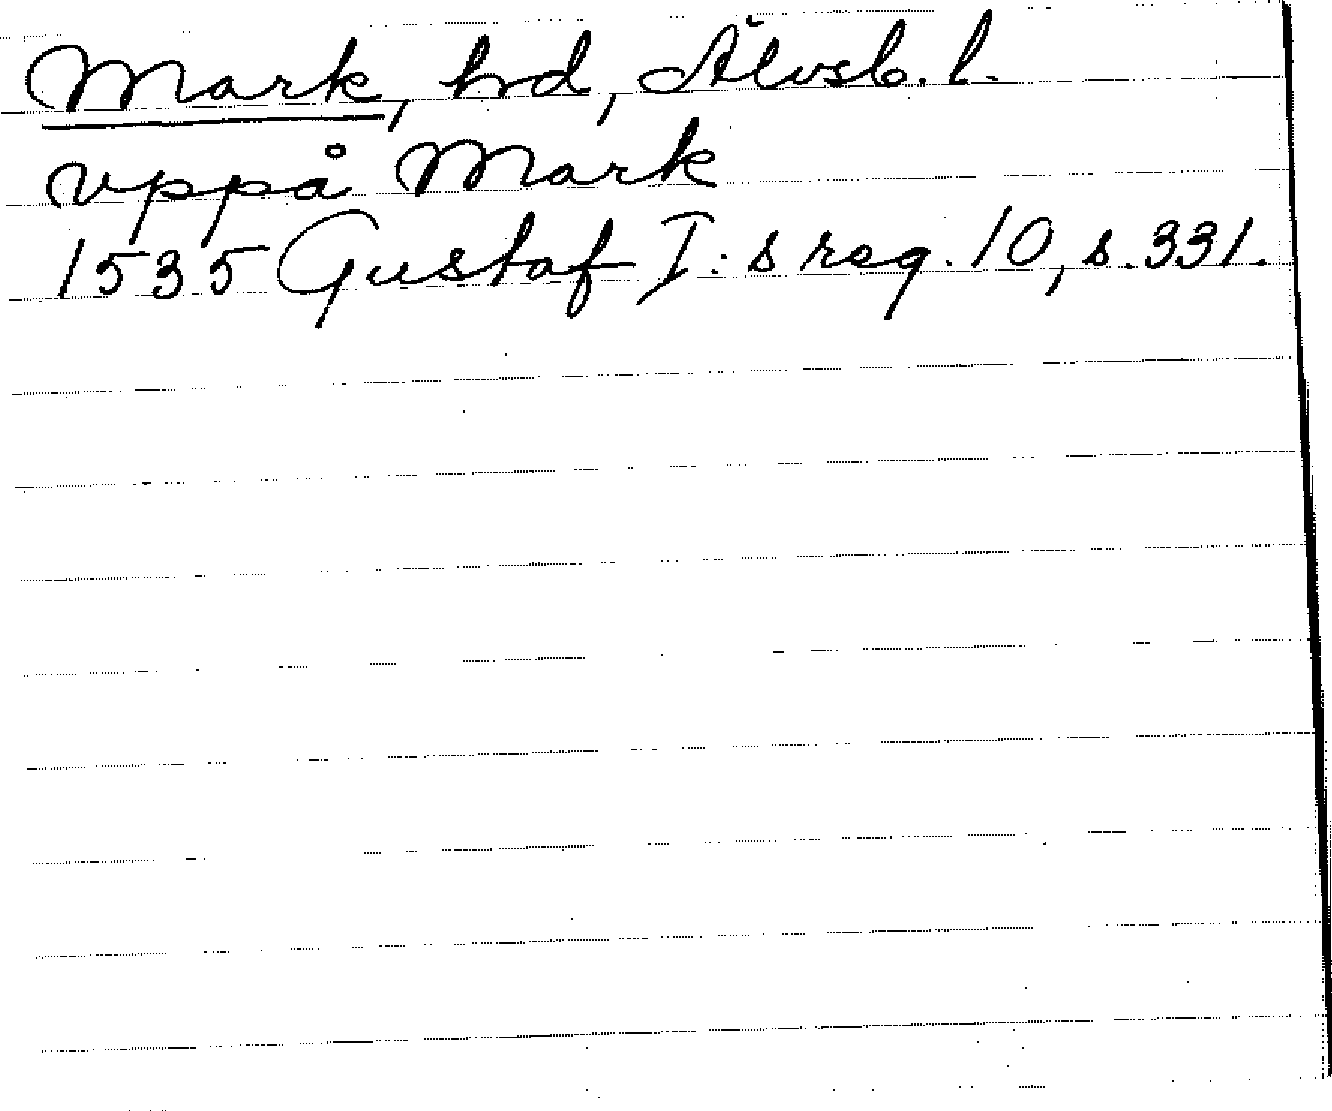 Mark, hd, Älvsb. l.
vppå Mark
1535 Gustaf I:s reg. 10, s. 331.